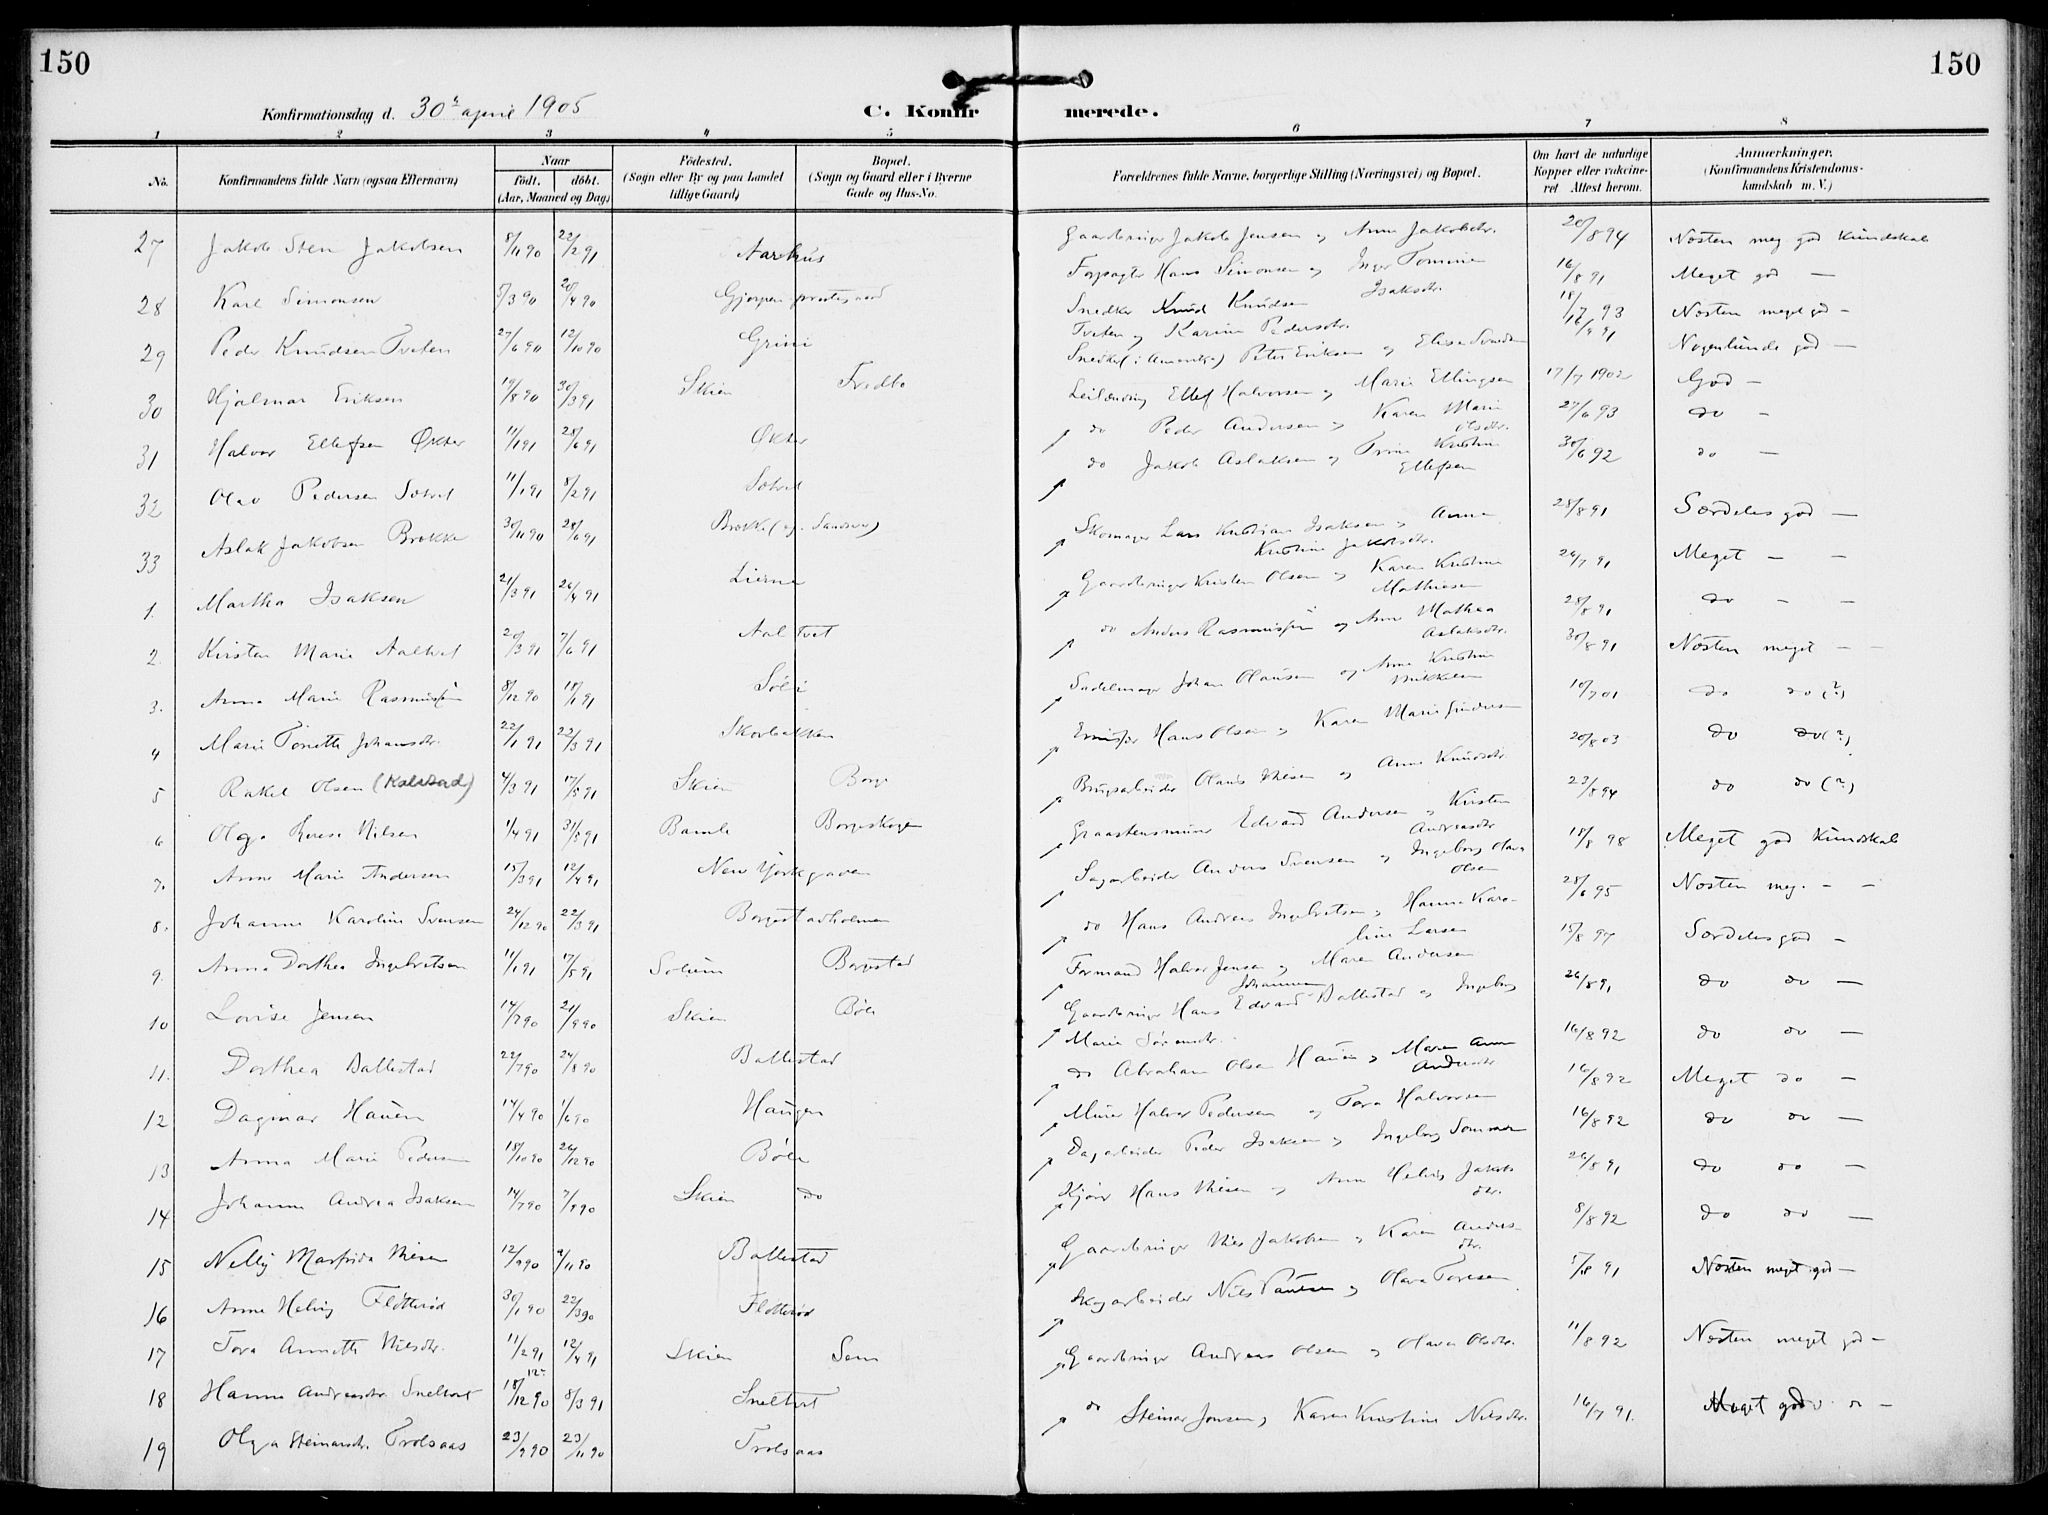 150
150
Konfirmationsdag d. 30te april 1905
C. Konfirmerede.
1 2 3 4 5 6 7 8
No.
Konfirmandens fulde Navn (ogsaa Efternavn)
Naar
født. døbt.
(Aar, Maaned og Dag)
Fødested.
(Sogn eller By og paa Landet
tillige Gaard)
Bopæl.
(Sogn og Gaard eller i Byerne
Gade og Hus-No.
Forældrenes fulde Navne, borgerlige Stilling (Næringsvei) og Bopæl.
Om havt de naturlige
Kopper eller vakcine-
ret Attest herom.
Anmærkninger.
(Konfirmandens Kristendoms-
kundskab m. V.)
27 Jakob Sten Jakobsen 8/11 90 22/2 91 Aarhus Gaardbruger Jakob Jensen og Anne Jakobsdtr. 20/8 94 Næsten meg god kundskab
28 Karl Simonsen 5/3 90 20/4 90 Gjerpen prestegaard Forpagter Hans Simonsen og Inger Tomine Isaksdtr. 16/8 91 Meget god —
29 Peder Knudsen Tveten 27/6 90 12/10 90 Grini Snedker Knud Knudsen Tveten og Karine Pedersdtr. 18/7 93 Næsten meget god —
30 Hjalmar Eriksen 19/8 90 30/3 91 Skien Fredbo Snedker (i Amerika) Peter Eriksen og Elise 16/9 91 Nogenlunde god —
31 Halvor Ellefsen Økter 11/1 91 28/6 91 Økter Leilænding Ellef Halvorsen og Marie Ellingsen 17/7 1902 God —
32 Olav Pedersen Solvet 11/1 91 8/2 91 do Peder Andersen og Karen Marie Olsdtr. 27/6 93 do —
33 Aslak Jakobsen Brekke 30/11 90 28/6 91 Brekke do Jakob Aslaksen og Trine Kristine Ellefsen 30/6 92 do —
1. Martha Isaksen 21/3 91 26/4 91 Lierne Skomager Lars Kristian Isaksen og Anne Kristine Jakobsdtr. 28/8 91 Særdeles god —
2. Kirsten Marie Aaltvet 20/3 91 7/6 91 Aaltvet Gaardbruger Kristen Olsen og Karen Kristine Mathiesen 26/7 91 Meget — —
3. Anna Marie Rasmussen 8/12 90 18/1 91 Søli do Anders Rasmussen og Anne Mathea Aslaksdtr. 28/8 91 do — —
4 Marie Tonette Johansdtr. 22/1 91 22/3 91 Skovbakken Sadelmager Johan Olausen og Anne Kristine 30/8 91 Næsten meget — —
5 Rakel Olsen (Kalstad) 4/3 91 17/5 91 Skien Borge Hans Olsen og Karen Marie 10/7 01 do do (?)
6 Olga Lovise Nilsen 1/4 91 31/5 91 Bamle Borgeskogen Brugsarbeider Olaus Nilsen og Anne Knudsdtr. 20/8 03 do do (?)
7. Anne Marie Andersen 15/3 91 12/4 91 New Yorkgaden Graastensmurer Edvard Andersen og Kirsten Andreasdtr 23/8 94 do do (?)
8. Johanne Karoline Svensen 24/12 90 22/3 91 Borgestadholmen Sagarbeider Anders Svensen og Ingeborg Olava Olsen 18/8 98 Meget god kundskab
9. Anna Dorthea Ingebretsen 11/1 91 17/5 91 Solum Borgestad do Hans Andreas Ingebretsen og Hanne Karoline Larsen 28/6 95 Næsten meg. — —
10 Lovise Jensen 14/7 90 21/9 90 Skien Bøle Formand Halvor Jensen og Maren Andersen 15/8 97 Særdeles god —
11. Dorthea Ballestad 22/7 90 24/8 90 Ballestad Gaardbruger Hans Edvard Johannesen Ballestad og Ingeborg Marie Sørensdtr. 26/8 91 do do —
12 Dagmar Hauen 14/4 90 1/6 90 Haugen do Abraham Olsen Hauen og Maren Anne Andersdtr 16/8 92 do do —
13 Anna Marie Pedersen 18/10 90 26/12 90 Bøle Murer Halvor Pedersen og Tora Halvorsen 16/8 92 Meget do —
14 Johanne Andrea Isaksen 14/7 90 7/9 90 Skien do Dagarbeider Peder Isaksen og Ingeborg 16/8 92 do do —
15 Nelly Marfrida Nilsen 12/9 90 9/11 90 Ballestad Kjører Hans Nilsen og Anne Helvig Jakobsdtr. 26/8 91 do do —
16 Anne Helvig Flitterød 30/1 90 22/3 90 Gaardbruger Nils Jakobsen og Karen Andersdtr. 8/8 92 do do —
17 Tora Annette Nilsdtr. 11/2 91 12/4 91 Skien Sem Skogarbeider Nils Paulsen og Olava Toresen 5/8 91 Næsten meget god —
18 Hanna Andreasdtr. Sneltvet 18/12 90 8/3 91 Sneltvet Gaardbruger Andreas Olsen og Olava Olsdtr. 11/8 92 Næsten meget god —
19 Olga Steinarsdtr. Trolsaas 23/9 90 23/11 90 Trolsaas do Steinar Jonsen og Karen Kristine Nilsdtr. 16/7 91. Meget god —